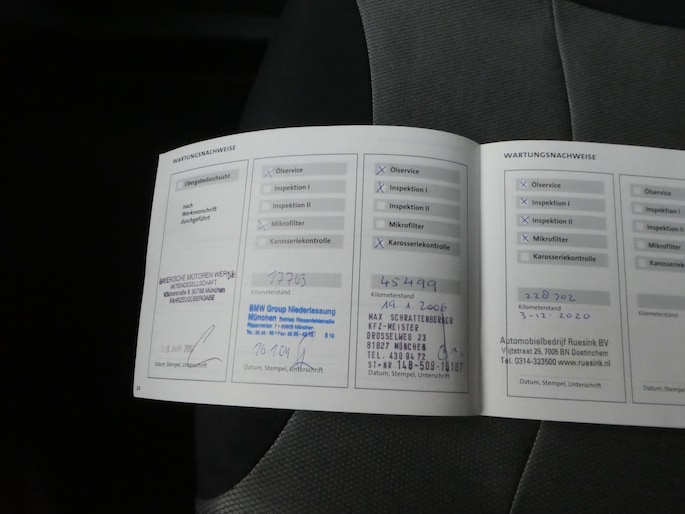 WARTUNGSNACHWEISE
Übergabedurchsicht
nach
Werksvorschrift
durchgeführt
BAYERISCHE MOTOREN WERKE
AKTIENGESELLSCHAFT
München
FAHRZEUGÜBERGABE
Datum, Stempel, Unterschrift
28
Ölservice
Inspektion I
Inspektion II
Mikrofilter
Karosseriekontrolle
17763
Kilometerstand
BMW Group Niederlassung
München
Datum, Stempel, Unterschrift
Ölservice
Inspektion I
Inspektion II
Mikrofilter
Karosseriekontrolle
45499
Kilometerstand
19.1.2006
MAX SCHRATTENBERGER
KFZ-MEISTER
DROSSELWEG 23
81827 MÜNCHEN
TEL. 430 04 72
ST-NR 148-509-
Datum, Stempel, Unterschrift
WARTUNGSNACHWEISE
Ölservice
Inspektion I
Inspektion II
Mikrofilter
Karosseriekontrolle
228702
Kilometerstand
3-12-2020
Automobielbedrijf Ruesink BV
Vlijtstraat 29, 7005 BN Doetinchem
Tel. 0314-323500 www.ruesink.nl
Datum, Stempel, Unterschrift
Ölservice
Inspektion I
Inspektion II
Mikrofilter
Karosse
Kilometerstand
Datum, Ste